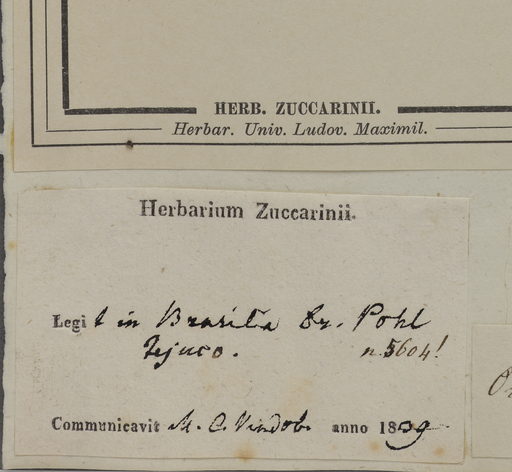 HERB. ZUCCARINII.
Herbar. Univ. Ludov. Maximil.
Herbarium Zuccarinii.
Legit in Brasilia Dr. Pohl
Tejuco. n. 5604!
Communicavit M. C. Vindob. anno 1839